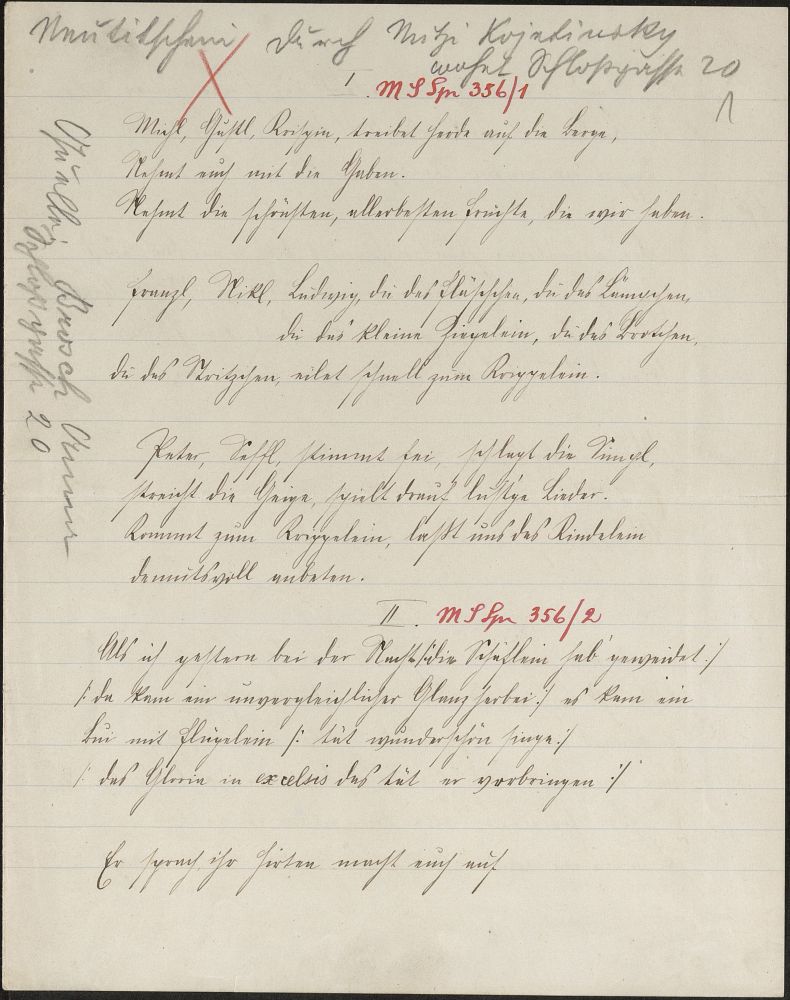 Neutitschein durch Mitzi Kojetinsky
wohnt Schloßgasse 20
I
M S Spr 356/1
1
Michl, Gustl, Krispin, treibet Herde auf die Berge,
Nehmt euch mit die Gaben.
Nehmt die schönsten, allerbesten Früchte, die wir haben.
Franzl, Nikl, Ludwig, du das Fläschchen, du das Lämpchen,
du das kleine Ziegelein, du das Brotchen,
du das Stritzchen, eilet schnell zum Krippelein.
Peter, Seffl, stimmt fei, schlagt die Tingl,
streicht die Geige, spielt drauf lust'ge Lieder.
Kommt zum Krippelein, laßt uns das Kindelein
demutsvoll anbeten.
II. M S Spr 356/2
Als ich gestern bei der Nacht /: die Schäflein hab' geweidet :/
/: da kam ein unvergleichlicher Glanz herbei :/ es kam ein
Bui mit Flügelein /: tät wunderschön singe :/
/: das Gloria in excelsis das tät er vorbringen :/
Er sprach, ihr Hirten macht euch auf
Quelle: Brosch Anna
Schloßgasse 20